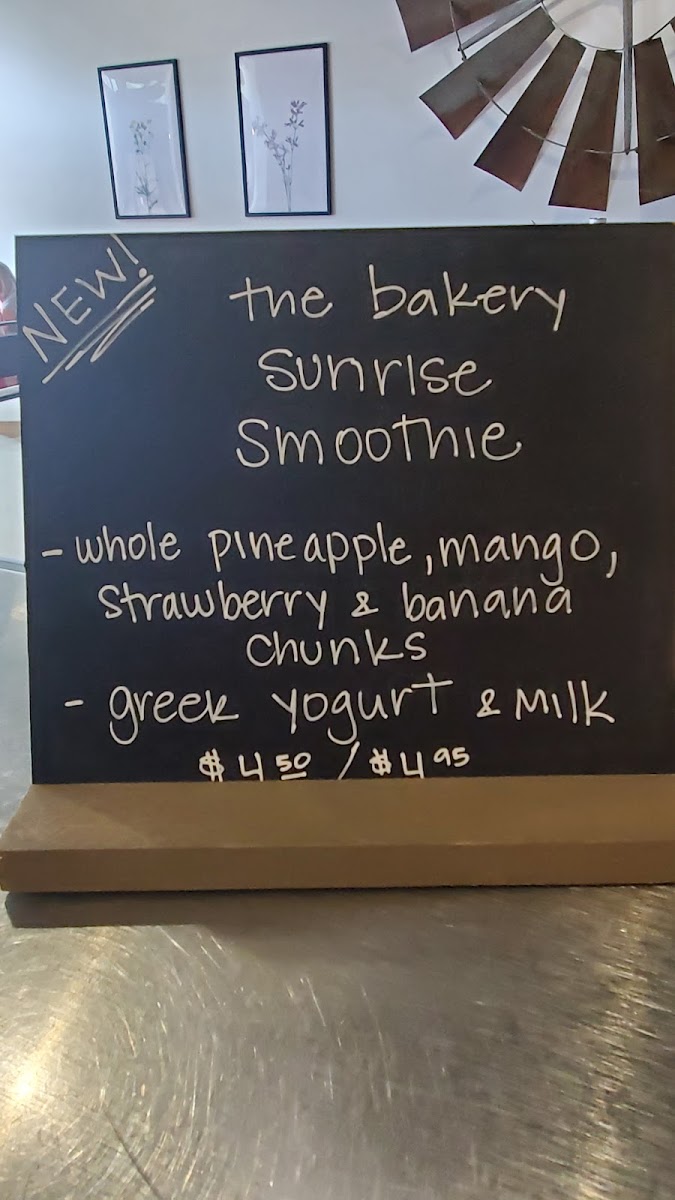 NEW!
the bakery
sunrise
smoothie
- whole pineapple, mango,
strawberry & banana
chunks
- greek yogurt & milk
$4.50 / $4.95